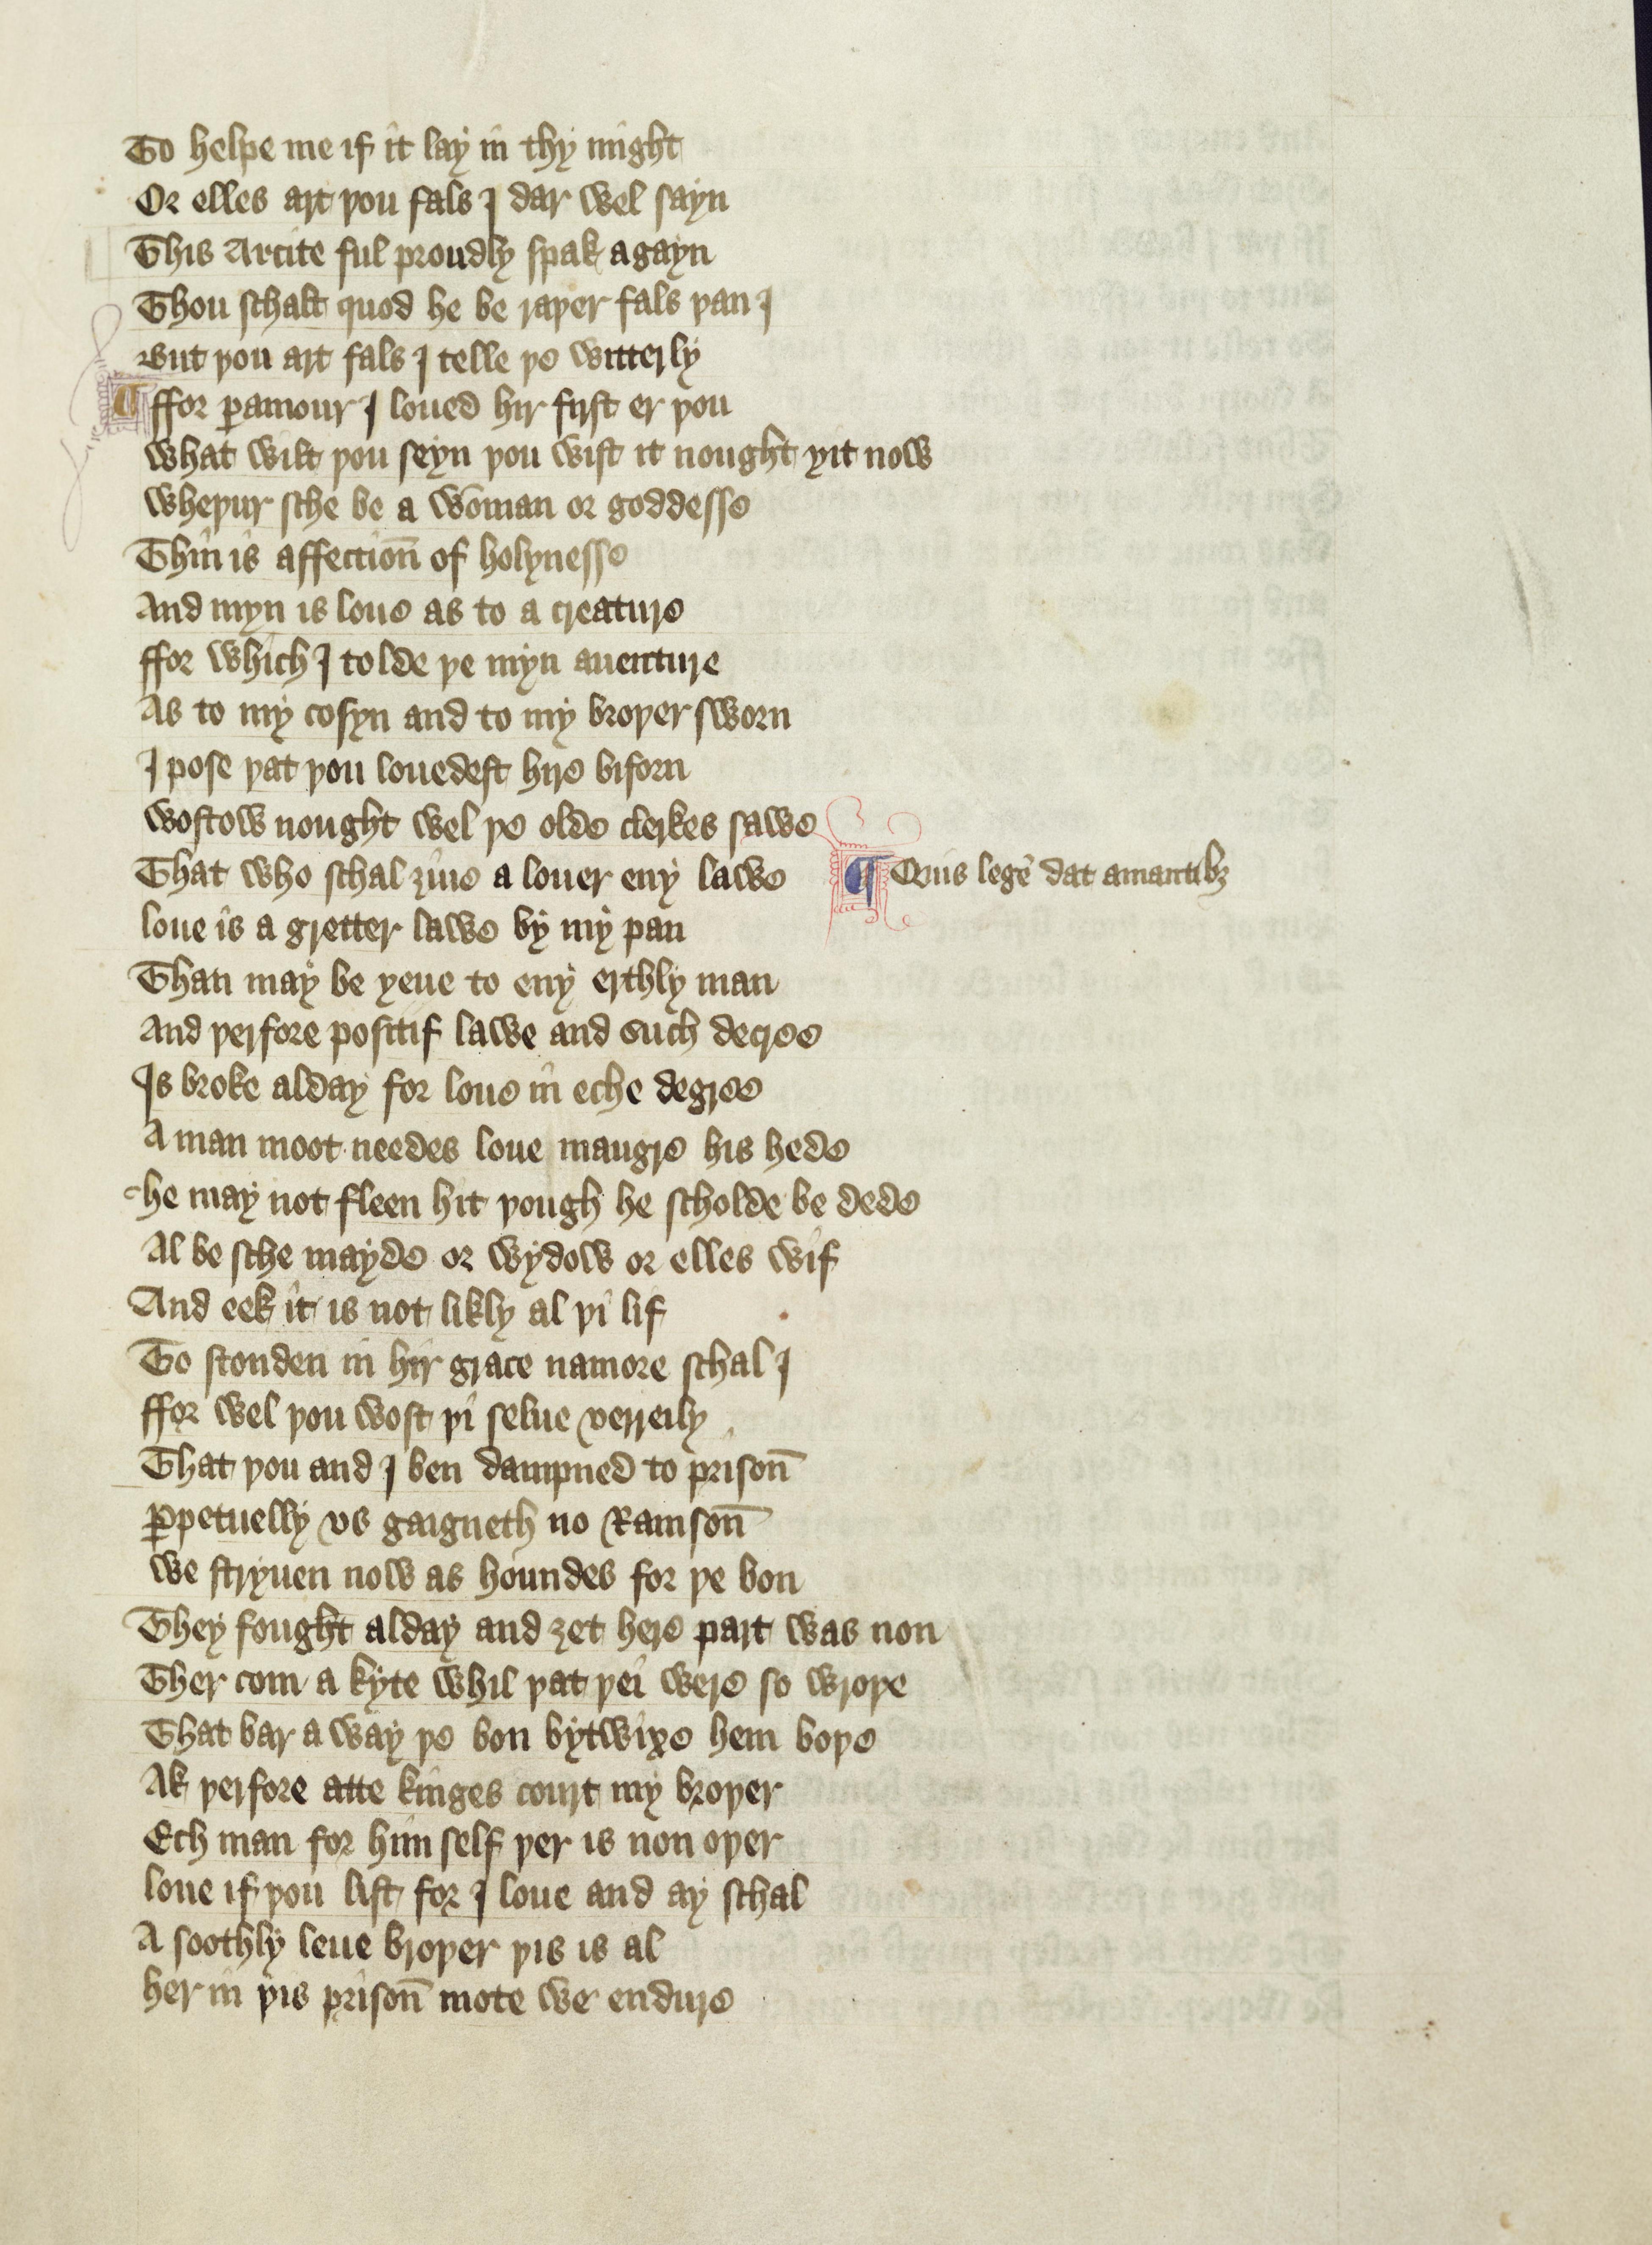 To helpe me if it lay in thy might
Or elles art þou fals I dar wel sayn
This Arcite ful proudly spak agayn
Thou schalt quod he be raþer fals þan I
But þou art fals I telle þe witterly
¶ ffor ꝑamour I loued hir first er þou
what wilt þou seyn þou wist it nought ȝit now
wheþur sche be a wōman or goddesse
Thin is affectioñ of holynesse
And myn is loue as to a creature
ffor which I tolde þe myn auenture
As to my cosyn and to my broþer sworn
I pose þat þou louedest hire biforn
wostow nought wel þe olde clerkes sawe
That who schal ȝiue a louer eny lawe ¶ Quis legē dat amantibꝫ
loue is a gretter lawe by my pan
Than may be ȝeue to eny erthly man
And þerfore positif lawe and such decree
Is broke alday for loue in eche degree
A man moot needes loue maugre his hede
he may not fleen hit þough he scholde be dede
Al be sche mayde or wydow or elles wif
And eek it is not likly al þi lif
To stonden in hir grace namore schal I
ffor wel þou wost þi selue verreily
That þou and I ben dampned to prisoñ
ꝑpetuelly vs gaigneth no Ramsoñ
we stryuen now as houndes for þe bon
They fought alday and ȝet here part was non
Ther com a kyte whil þat þei were so wroþe
That bar a way þe bon bytwixe hem boþe
Ak þerfore atte kinges court my broþer
Ech man for him self þer is non oþer
loue if þou list for I loue and ay schal
A soothly leue broþer þis is al
her in þis prisoñ mote we endure